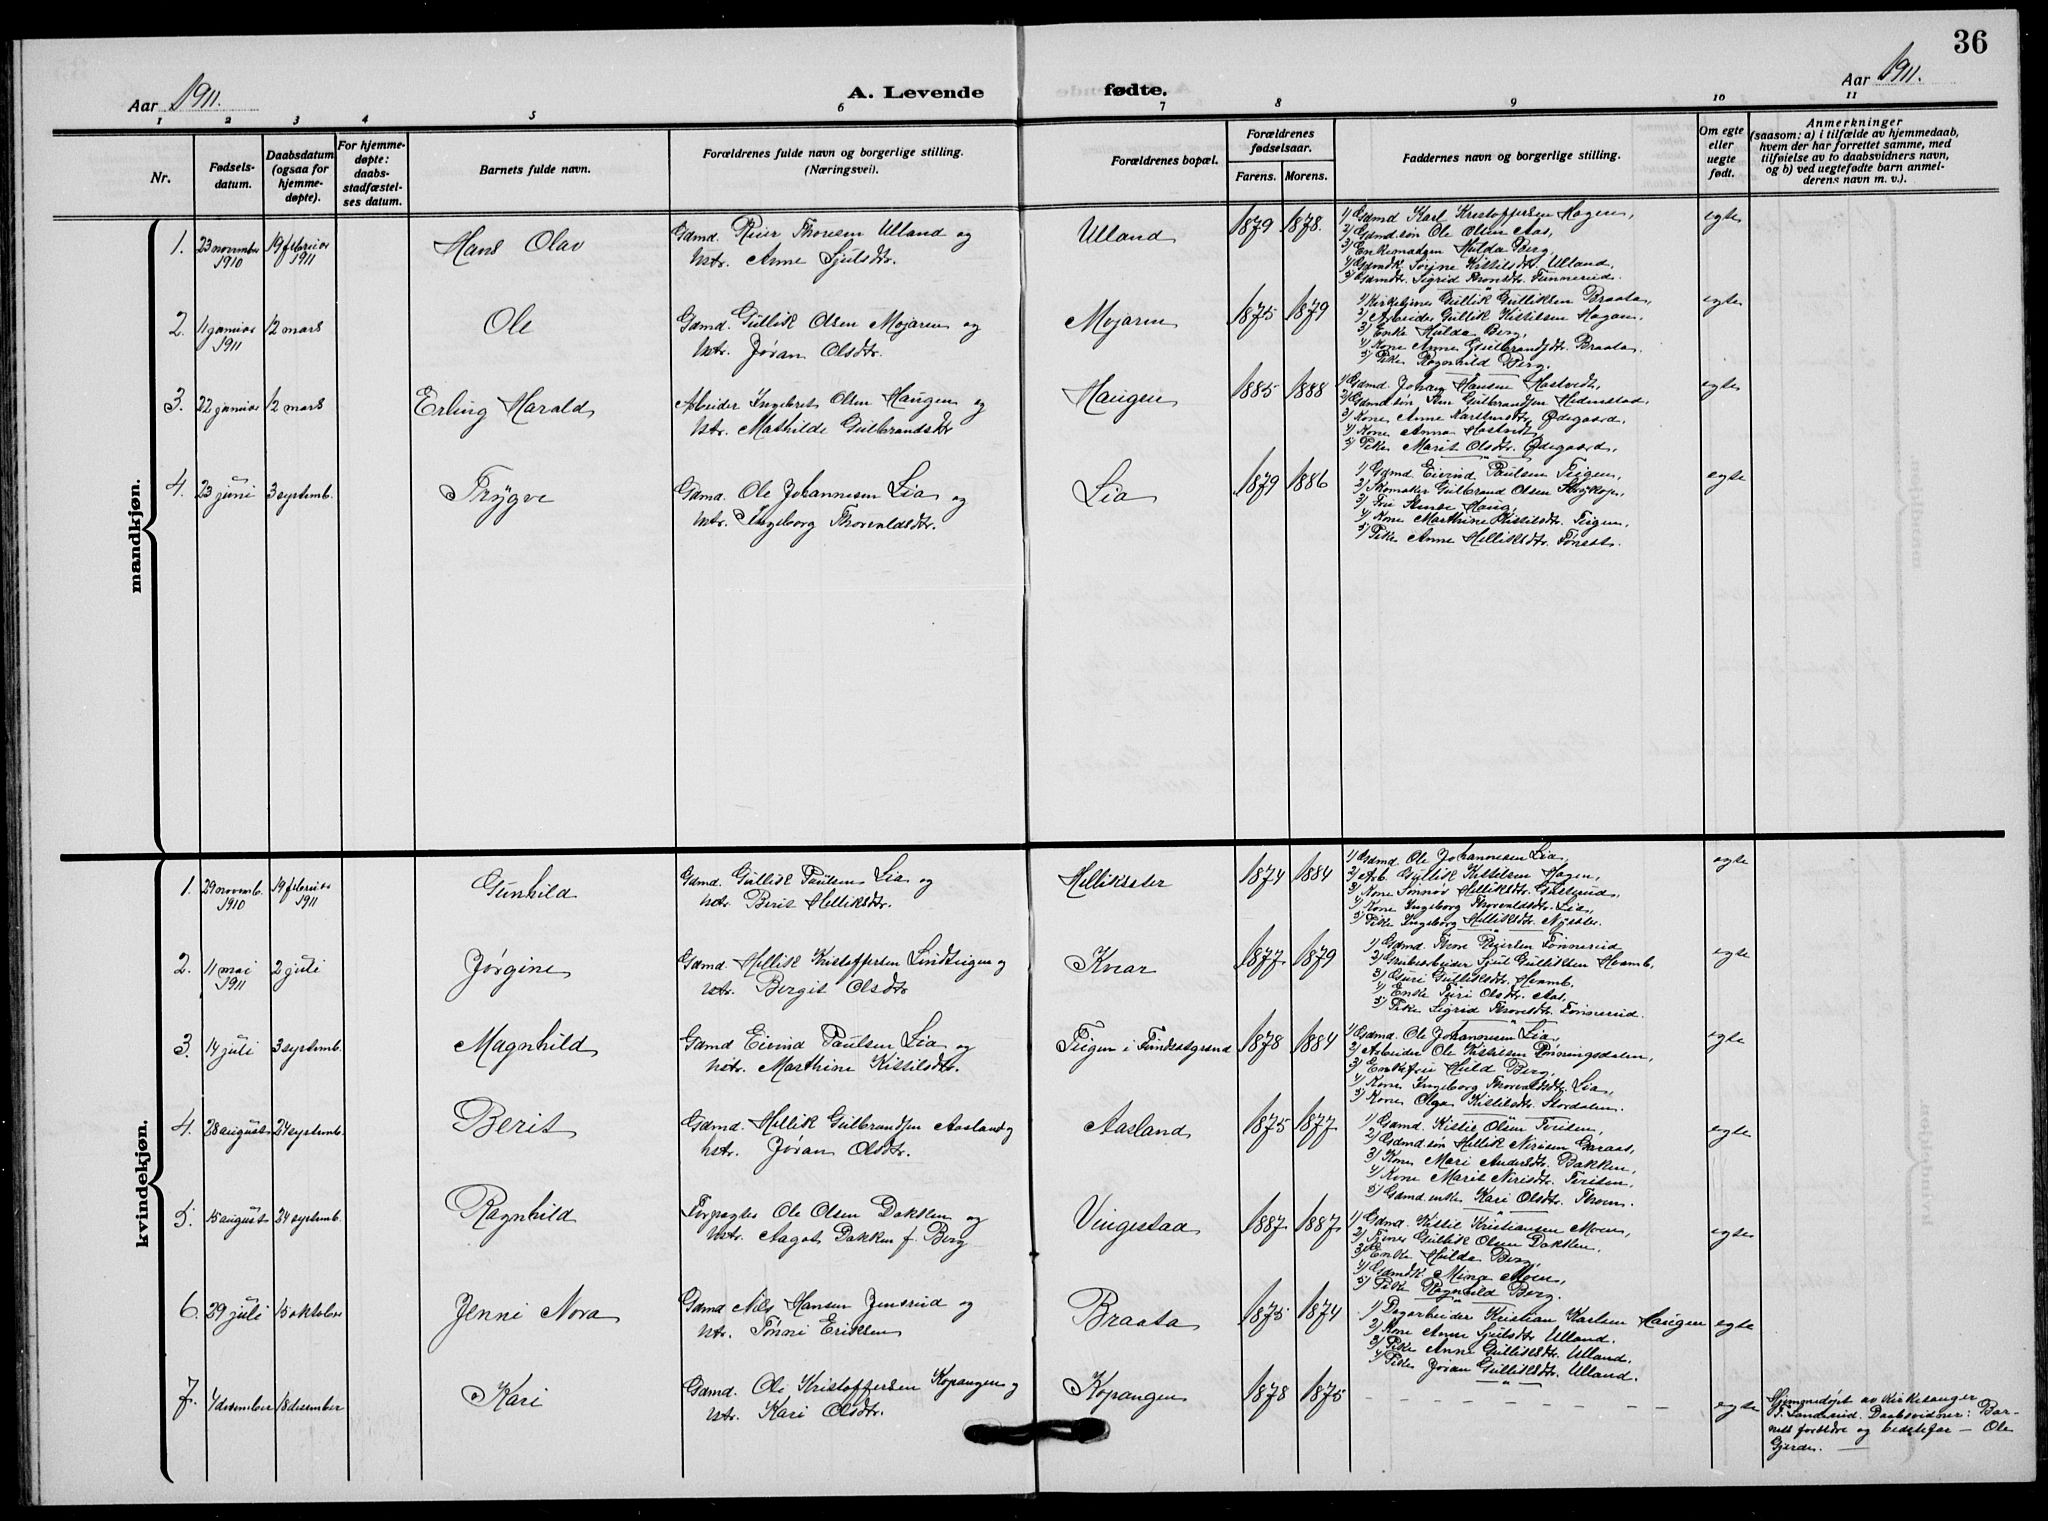 36
Aar 1911.
A. Levende fødte.
Aar 1911.
1 2 3 4 5 6 7 8 9 10 11
Nr.
Fødsels-
datum.
Daabsdatum
(ogsaa for
hjemme-
døpte).
For hjemme-
døpte:
daabs-
stadfæstel-
ses datum.
Barnets fulde navn.
Forældrenes fulde navn og borgerlige stilling.
(Næringsvei).
Forældrenes bopæl.
Forældrenes
fødselsaar.
Farens. Morens.
Faddernes navn og borgerlige stilling.
Om egte
eller
uegte
født.
Anmerkninger
(saasom: a) i tilfælde av hjemmedaab,
hvem der har forrettet samme, med
tilføielse av to daabsvidners navn,
og b) ved uegtefødte barn anmel-
derens navn m. v.).
mandkjøn.
1. 23 novmber 1910
19 februar 1911
Hans Olav
Gdmd. Reier Thoresen Ulland og
hstr. Anne Sjulsdtr.
Ulland
1879 1878.
1) Gdmd Karl Kristoffersen Hagen,
2) Gdmd.søn Ole Olsen Aas,
3) Enkemadam Hulda Berg,
4) Gdmdk. Sørine Kittilsdtr. Ulland.
5) Gdmdtr. Sigrid Thorsdtr. Tønnerud.
egte
2. 11 januar 1911
12 mars
Ole
Gdmd. Gullik Olsen Mojaren og
hstr. Jøran Olsdtr.
Mojaren
1875 1879
1) Kirketjener Gullik Gulliksen Braata,
2) Arbeider Gullik Kittilsen Hagen,
3) Enke Hulda Berg,
4) Kone Anne Gulbrandsdtr. Braata.
5) Pike Ragnhild Berg.
egte
3. 22 januar
12 mars
Erling Harald
Arbeider Ingebret Olsen Haugen og
hstr. Mathilde Gulbrandsdtr
Haugen
1885 1888
1) Gdmd. Johan Hansen Hostvedt,
2) Gdmd.søn Gulbrandsen Hedenstad,
3) Kone Anne Karstensdtr. Ødegaard,
4) Kone Anna Hostvedt,
5) Pike Marit Olsdtr. Ødegaard.
egte
4. 23 juni
3 septemb.
Trygve
Gdmd. Ole Johannesen Lia og
hstr. Ingeborg Thorvaldsdtr.
Lia
1879 1886
1) Gdmd Eivind Paulsen Teigen,
2) Skomaker Gulbrand Olsen
3) Fru Haug,
4) Kone Marthine Kittilsdtr. Teigen,
5) Pike Anne Helliksdtr.
egte
kvindekjøn.
1. 29 novemb. 1910
19 februar 1911
Gunhild
Gdmd. Gullik Paulsen Lia og
hstr. Berit Helliksdtr.
Helliksæter
1874 1884
1) Gdmd. Ole Johannesen Lia,
2) Arb. Gullik Kittilsen Hagen,
3) Kone Sønnøv Helliksdtr.
4) Kone Ingeborg Thorvaldsdtr. Lia,
5) Pike Ingeborg Helliksdtr.
egte
2. 11 mai 1911
2 juli
Jørgine
Gdmd. Hellik Kristoffersen Lindtvigen og
hstr. Bergit Olsdtr
Knar
1877 1879
1) Gdmd. Thore Reiersen Tønnerud
2) Grubearbeider Sjul Gulliksen Hvamb,
3) Guri Gulliksdtr. Hvamb.
4) Enke Guri Olsdtr. Aas,
5) Pike Sigrid Thorsdtr. Tønnerud.
egte
3. 14 juli
3 septemb.
Magnhild
Gdmd Eivind Paulsen Lia og
hstr. Marthine Kittilsdtr.
Teigen i Findsetgrænd
1878 1884
1) Gdmd. Ole Johannesen Lia,
2) Arbeider Ole Kittilsen
3) Enkefru Huld Berg,
4) Kone Ingeborg Thorvaldsdtr. Lia,
5) Kone Olga Kittilsdtr. Stordalen.
egte
4. 28 august
24 septemb.
Berit
Gdmd. Hellik Gulbrandsen Aasland og
hstr. Jøran Olsdtr.
Aasland
1875 1877
1) Gdmd. Kittil Olsen
2) Gdmd.søn Hellik Nirisen Garaas,
3) Kone Mari Andersdtr. Bakken,
4) Kone Marit Nirisdtr.
5) Gdmd.enke Kari Olsdtr. Thoen.
egte
5. 15 august
24 septemb.
Ragnhild
Forpagter Ole Olsen Dokken og
hstr. Aagot Dokken f. Berg
Vingestad
1887 1887
1) Gdmd. Kittil Kristiansen Moen,
2) Tjener Gullik Olsen Dokken,
3) Enke Hulda Berg,
4) Gdmdk Mina Moen,
5) Pike Ragnhild Berg.
egte
6. 29 juli
15 oktober
Jenni Nora
Gdmd Nils Hansen Jensrud og
hstr. Tønni Eriksen
Braata
1875 1874
1) Dagarbeider Kristian Karlsen Haugen
2) Kone Anne Sjulsdtr Ulland.
3) Pike Anne Gulliksdtr. Ulland.
4) Pike Jøran Gulliksdtr. Ulland.
egte
7. 4 desember
18 desember
Kari
Gdmd. Ole Kristoffersen Kopangen og
hstr. Kari Olsdtr.
Kopangen
1878 1875
egte
Hjemmedøpt av kirkesanger
T. Landerud. Daabsvidner: Bar-
nets forældre og bedstefar – Ole
Gjerde.